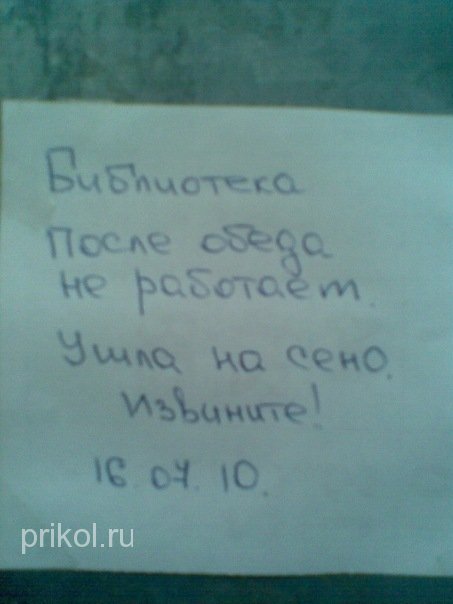 Библиотека
После обеда
не работает.
Ушла на сено.
Извините!
16.07.10.
prikol.ru